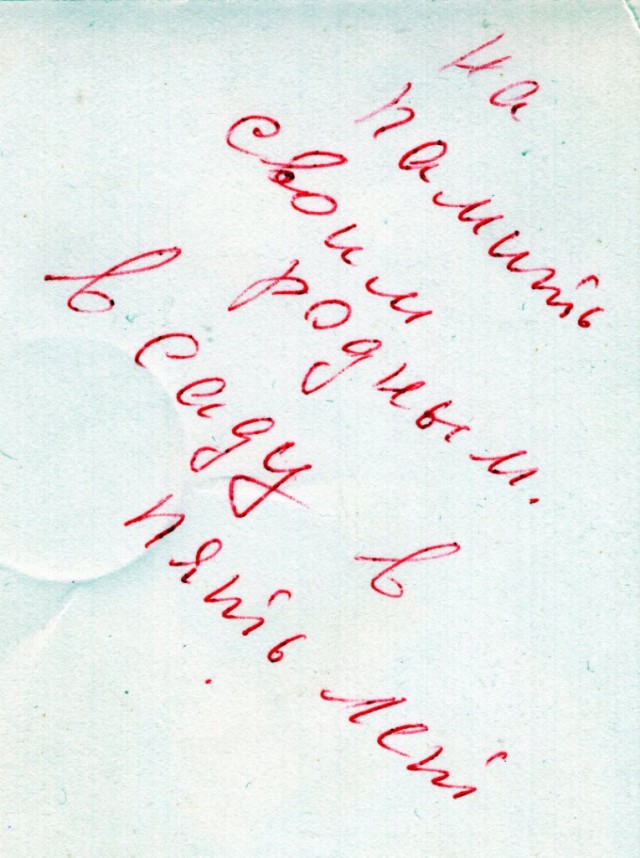 на
памить
своим
родным.
в саду в
пять лет